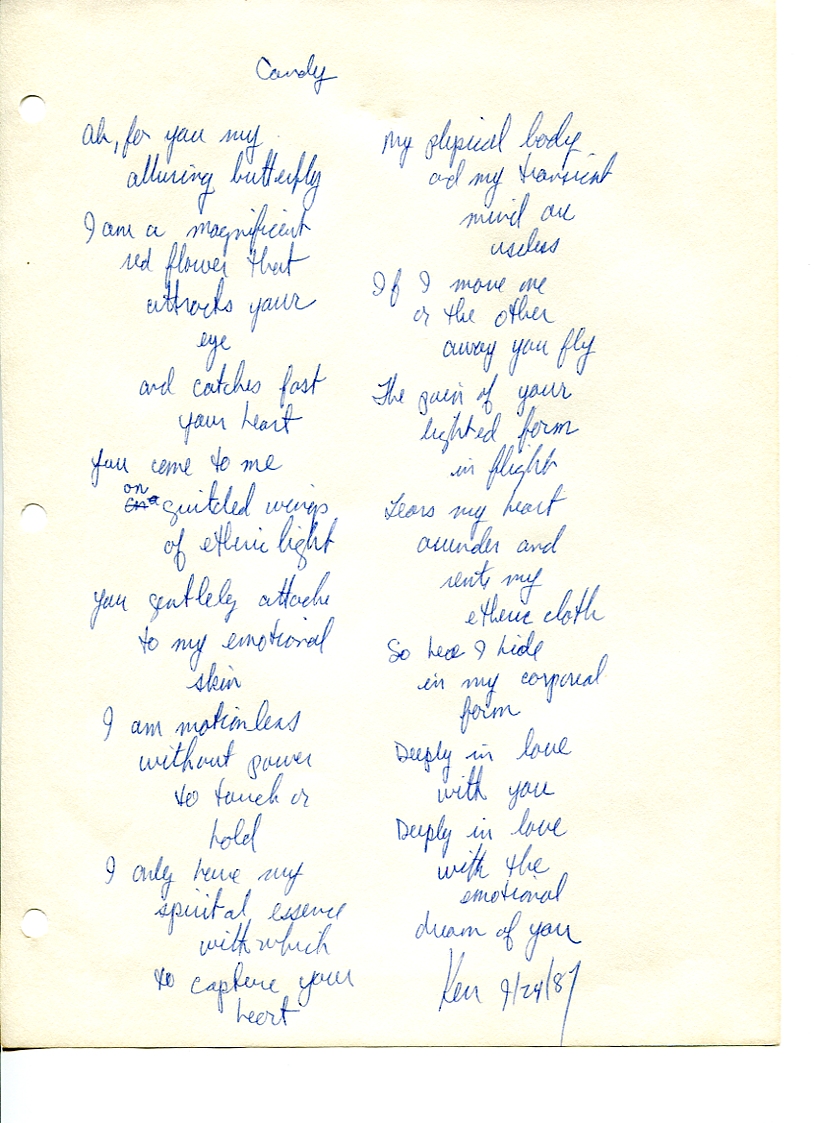 Candy
Ah, for you my
alluring butterfly
I am a magnificent
red flower that
attracts your
eye
and catches fast
your heart
you come to me
on
a guilded wings
of etheric light
you gentlely attache
to my emotional
skin
I am motionless
without power
to touch or
hold
I only have my
spirital essence
with which
to capture your
heart
My physical body
and my transient
mind are
useless
If I move one
or the other
away you fly
The pain of your
lighted form
in flight
Tears my heart
asunder and
rents my
etheric cloth
So here I hide
in my corporeal
form
Deeply in love
with you
Deeply in love
with the
emotional
dream of you
Ken 9/24/87